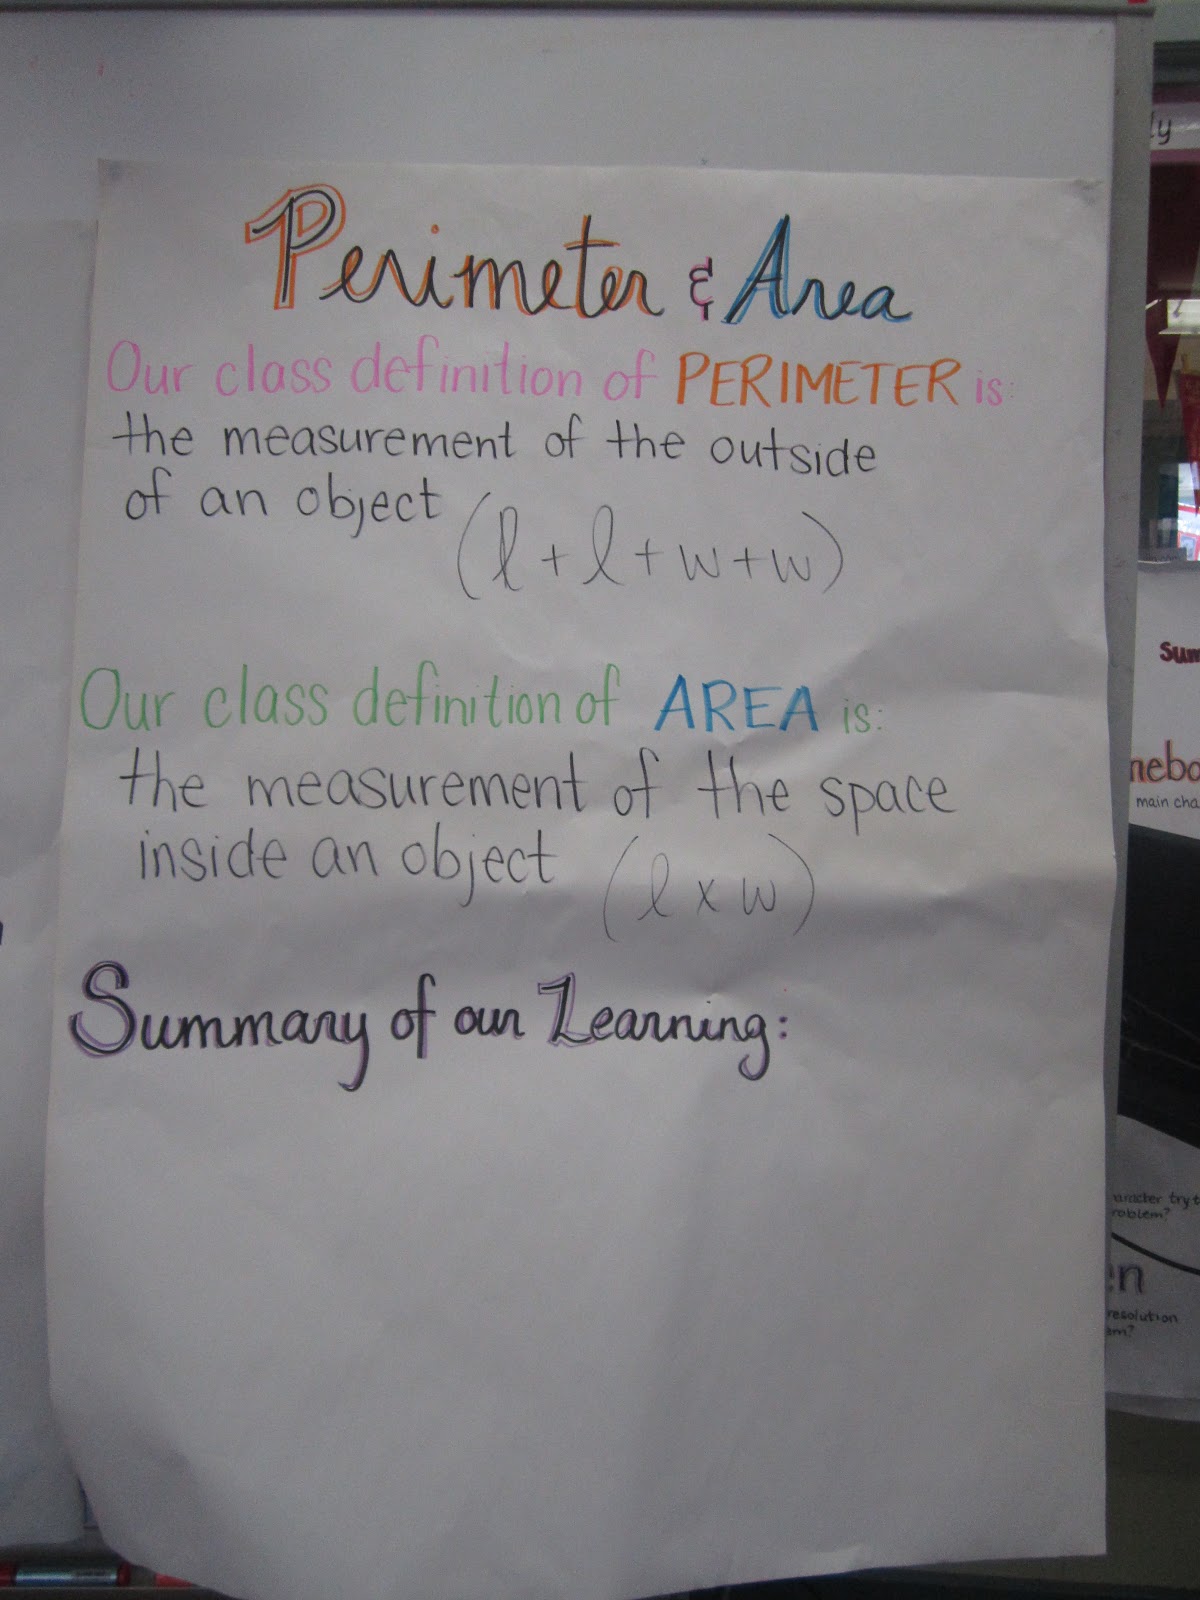 Perimeter & Area
Our class definition of PERIMETER is:
the measurement of the outside
of an object (l + l + w + w)
Our class definition of AREA is:
the measurement of the space
inside an object (l x w)
Summary of our Learning:
ly
Sum
nebo
main cha
aracter try t
roblem?
en
resolution
em?